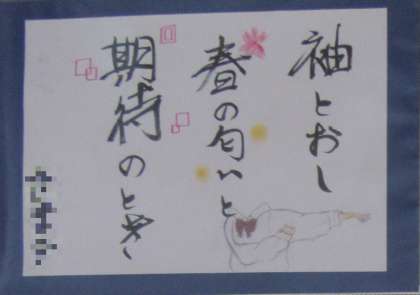 袖とおし
春の匂いと
期待のとき